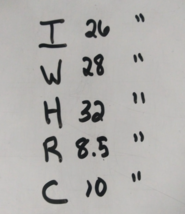 I 26 "
W 28 "
H 32 "
R 8.5 "
C 10 "